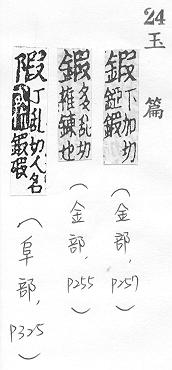 24
玉篇
鍜 下加切 錏鍜 (金部, p257)
鍛 多乱切 椎鍊也 (金部, p255)
丁乱切人名 (阜部, p325)